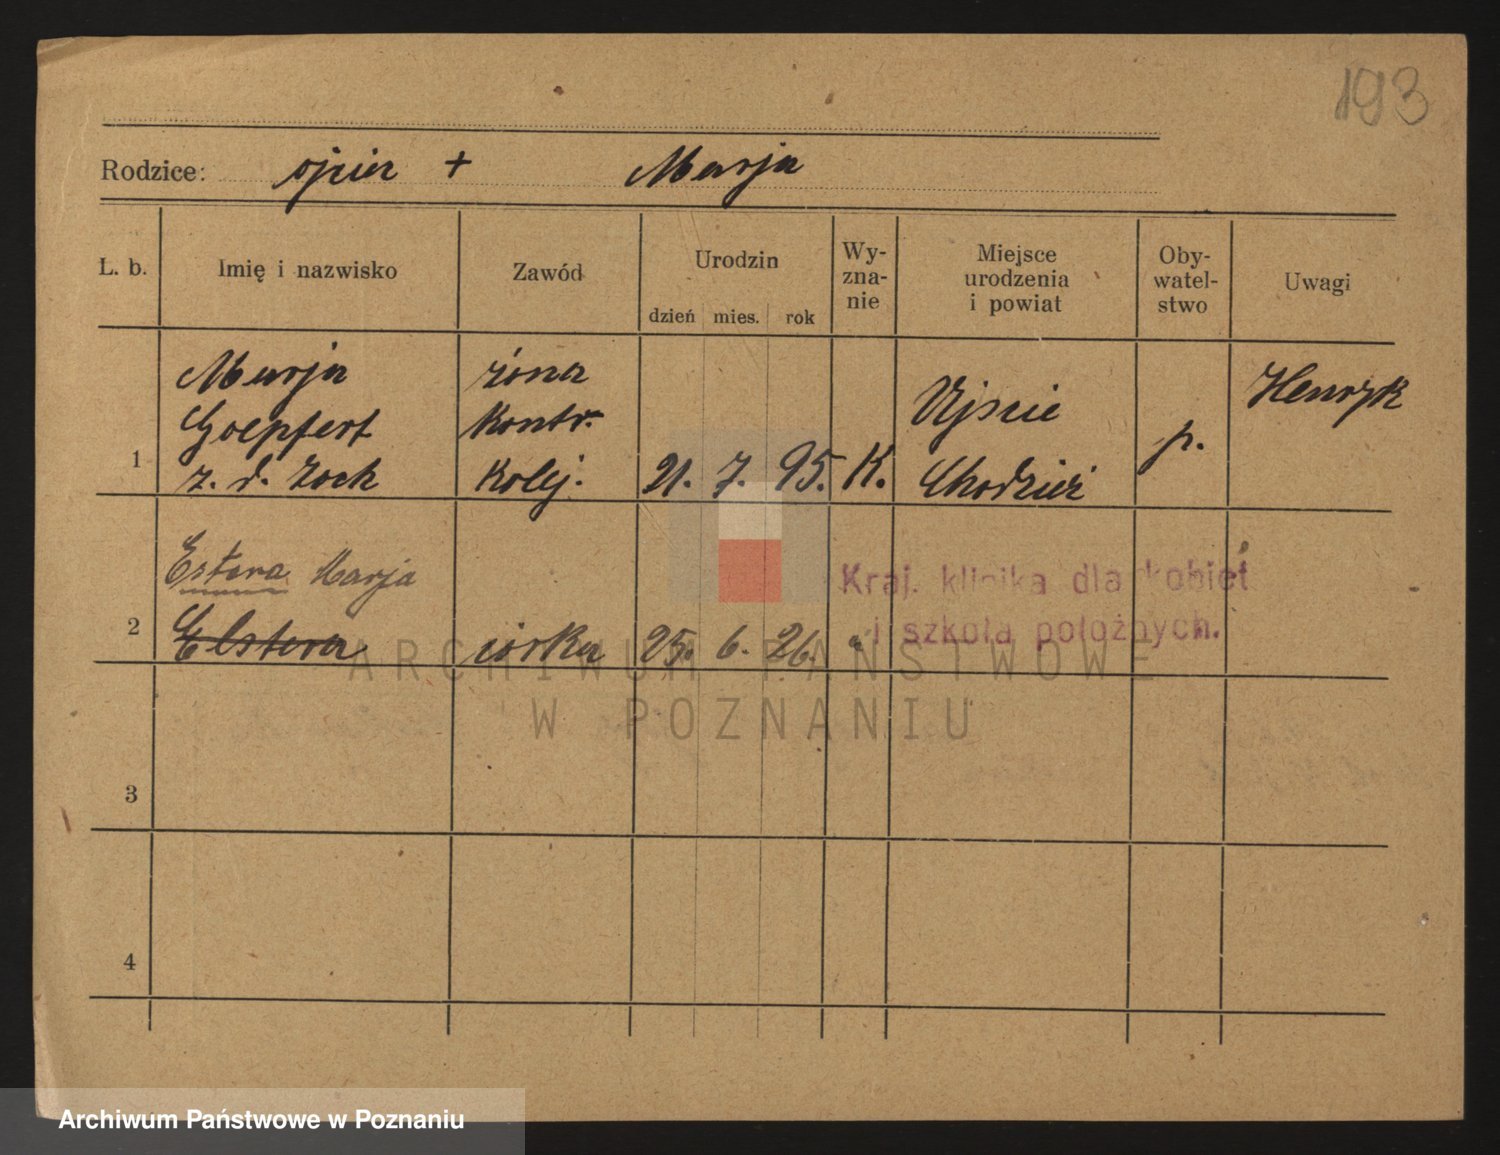 193
Rodzice: ojciec + Marja
L. b. Imię i nazwisko Zawód Urodzin Wy- Miejsce Oby- Uwagi
zna- urodzenia watel-
dzień mies. rok nie i powiat stwo
Marja żona Henryk
Goepfert kontr. Ujście
1 z. d. Zoch kolej. 21. 7. 95. K. Chodzież p.
Estera Marja Kraj. klinika dla kobiet
2 Elstera córka 25. 6. 26. " i szkoła położnych.
ARCHIWUM PAŃSTWOWE
W POZNANIU
3
4
Archiwum Państwowe w Poznaniu